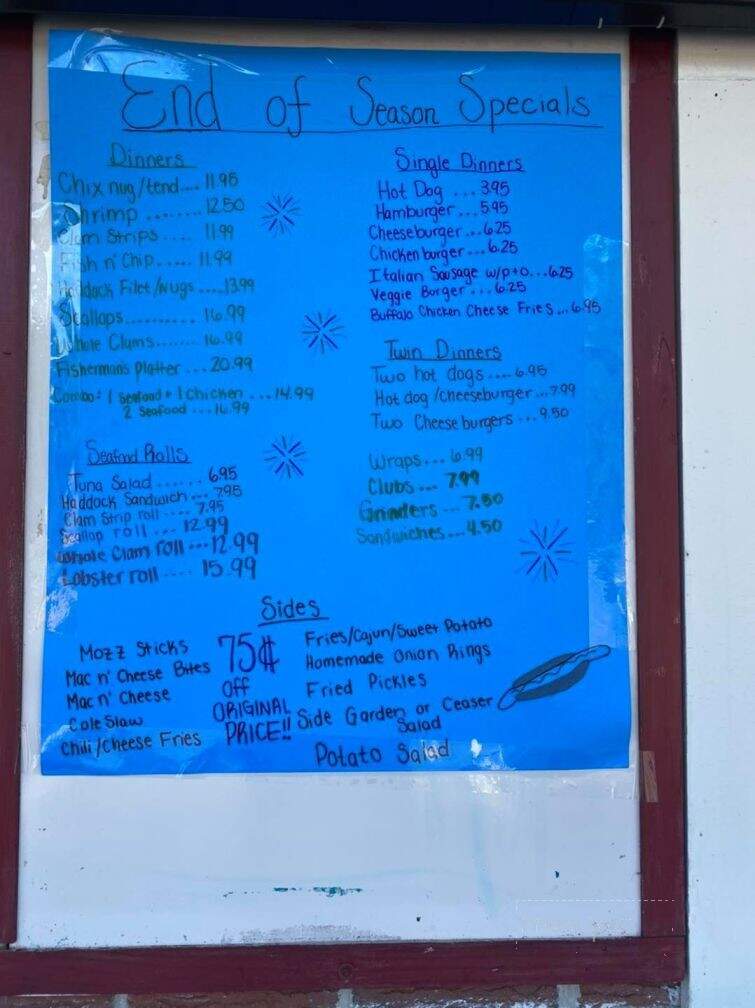 End of Season Specials
Dinners
Chix nug/tend.... 11.95
Shrimp ........ 12.50
Clam Strips .... 11.99
Fish n' Chip..... 11.99
Haddock Filet/Nugs ....13.99
Scallops........... 16.99
Whole Clams....... 16.99
Fisherman's Platter ... 20.99
Combo: 1 Seafood + 1 Chicken ... 14.99
2 Seafood ... 16.99
Seafood Rolls
Tuna Salad ....... 6.95
Haddock Sandwich ... 7.95
Clam Strip roll .... 7.95
Scallop roll ... 12.99
Whole Clam roll ... 12.99
Lobster roll .... 15.99
Single Dinners
Hot Dog ... 3.95
Hamburger ... 5.95
Cheeseburger ... 6.25
Chicken burger ... 6.25
Italian Sausage w/p+o...6.25
Veggie Burger ... 6.25
Buffalo Chicken Cheese Fries ... 6.95
Twin Dinners
Two hot dogs .... 6.95
Hot dog/cheeseburger ... 7.99
Two Cheeseburgers ... 9.50
Wraps ... 6.99
Clubs ... 7.99
Grinders ... 7.50
Sandwiches ... 4.50
Sides
Mozz Sticks
Mac n' Cheese Bites
Mac n' Cheese
Cole Slaw
Chili/Cheese Fries
75¢
Off
ORIGINAL
PRICE!!
Fries/Cajun/Sweet Potato
Homemade Onion Rings
Fried Pickles
Side Garden or Ceaser
Salad
Potato Salad